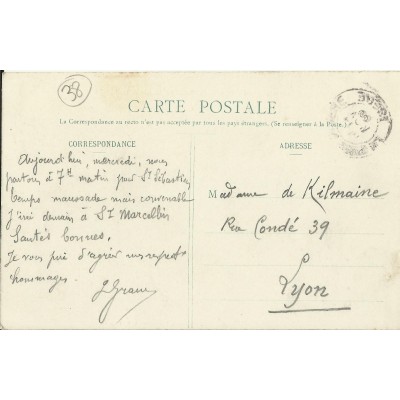 38
CARTE POSTALE
La Correspondance au recto n'est pas acceptée par tous les pays étrangers. (Se renseigner à la Poste.)
CORRESPONDANCE
Aujourd'hui, mercredi, nous
partons à 7h matin pour St Sébastien
temps maussade mais convenable
J'irai demain à St Marcellin
Santés bonnes.
Je vous prie d'agréer mes respects
hommages.
ADRESSE
Madame de Kilmaine
Rue Condé 39
Lyon